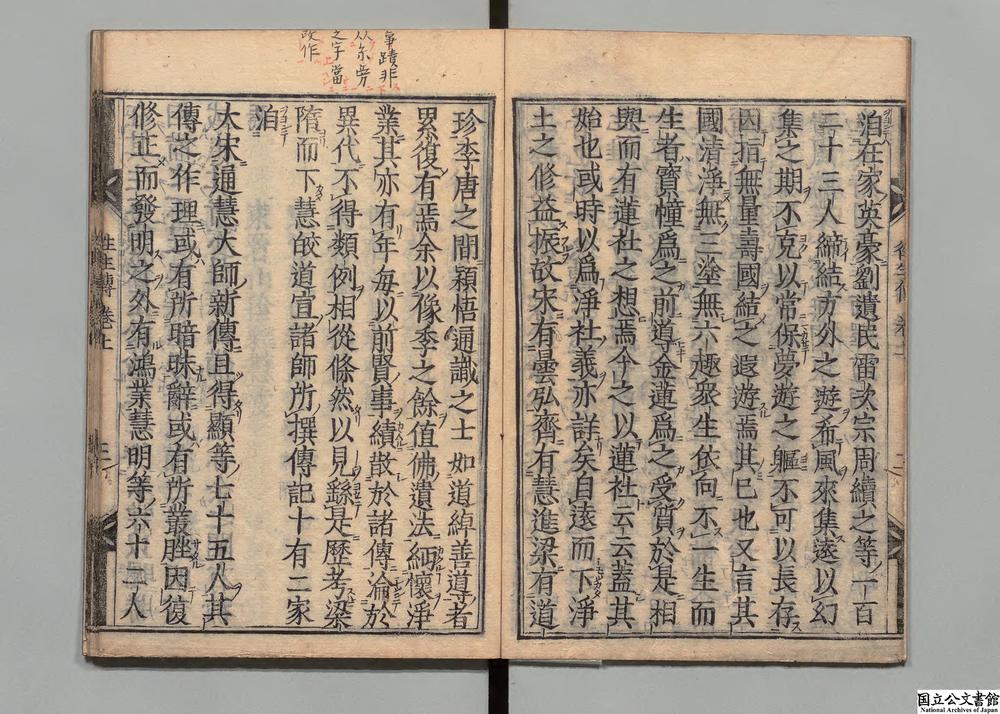 洎在家英豪劉遺民雷次宗周續之等一百
二十三人締結方外之遊希風來集遂以幻
集之期不克以常保夢遊之軀不可以長存
因指無量壽國結之遐遊焉其已也又言其
國清淨無三塗無六趣衆生依向不一生而
生者寳幢爲之前導金蓮爲之受質於是相
與而有蓮社之想焉今之以蓮社云云蓋其
始也或時以爲淨社義亦詳矣自遠而下淨
土之修益振故宋有曇弘齊有慧進梁有道
珍李唐之間穎悟通識之士如道綽善導者
累復有焉余以像季之餘值佛遺法緬懷淨
業其亦有年每以前賢事績散於諸傳淪於
異代不得類例相從條然以見繇是歷考梁
隋而下慧皎道宣諸師所撰傳記十有二家
洎
大宋通慧大師新傳且得顯等七十五人其
傳之作理或有所暗昧辭或有所叢脞因復
修正而發明之外有鴻業慧明等六十二人
事蹟非
从糸旁
之字當
改作
往生傳卷上
国立公文書館
National Archives of Japan